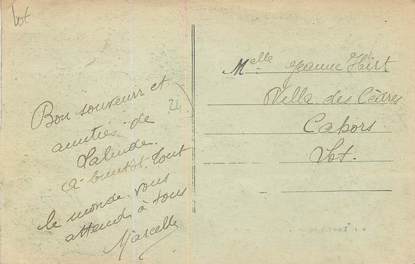 Lot
Bon souvenir et
amitiés de
Lalinde.
A bientôt tout
le monde vous
attend à tous
Marcelle
Melle Jeanne
Villa des Cèdres
Cahors
Lot.